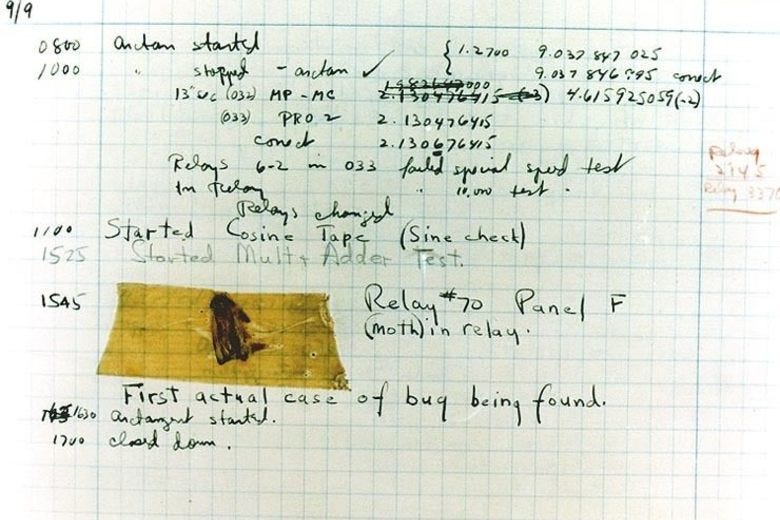 9/9
0800 arctan started { 1.2700 9.037 847 025
1000 " stopped - arctan ✓ 9.037 846 795 correct
13"uc (032) MP - MC 2.130476415 (-3) 4.615925059(-2)
(033) PRO 2 2.130476415
correct 2.130676415
Relays 6-2 in 033 failed special speed test
in Relay " 10,000 test .
Relays changed
1100 Started Cosine Tape (Sine check)
1525 Started Mult + Adder Test.
1545 Relay #70 Panel F
(moth) in relay.
First actual case of bug being found.
1630 arctangent started.
1700 closed down.
Relay
2145
Relay 3370